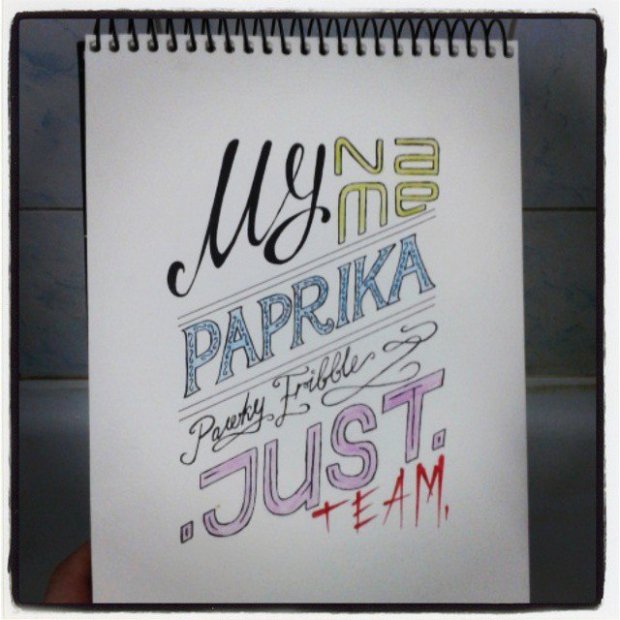 My Name
PAPRIKA
Pawky Fribble
.JUST.
TEAM.